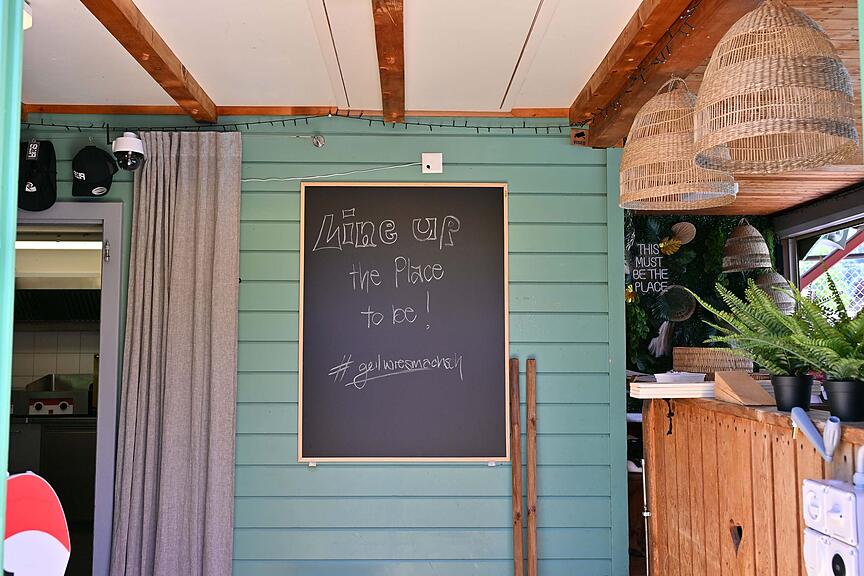 Line up
the Place
to be!
#geilwiesmachsch
THIS
MUST
BE THE
PLACE